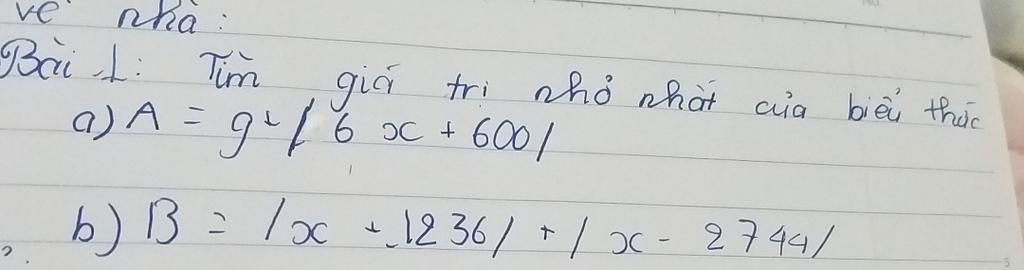 về nhà:
Bài 1: Tìm giá trị nhỏ nhất của biểu thức
a) A = 9 + / 6 x + 600 /
b) B = / x + 1236 / + / x - 2744 /